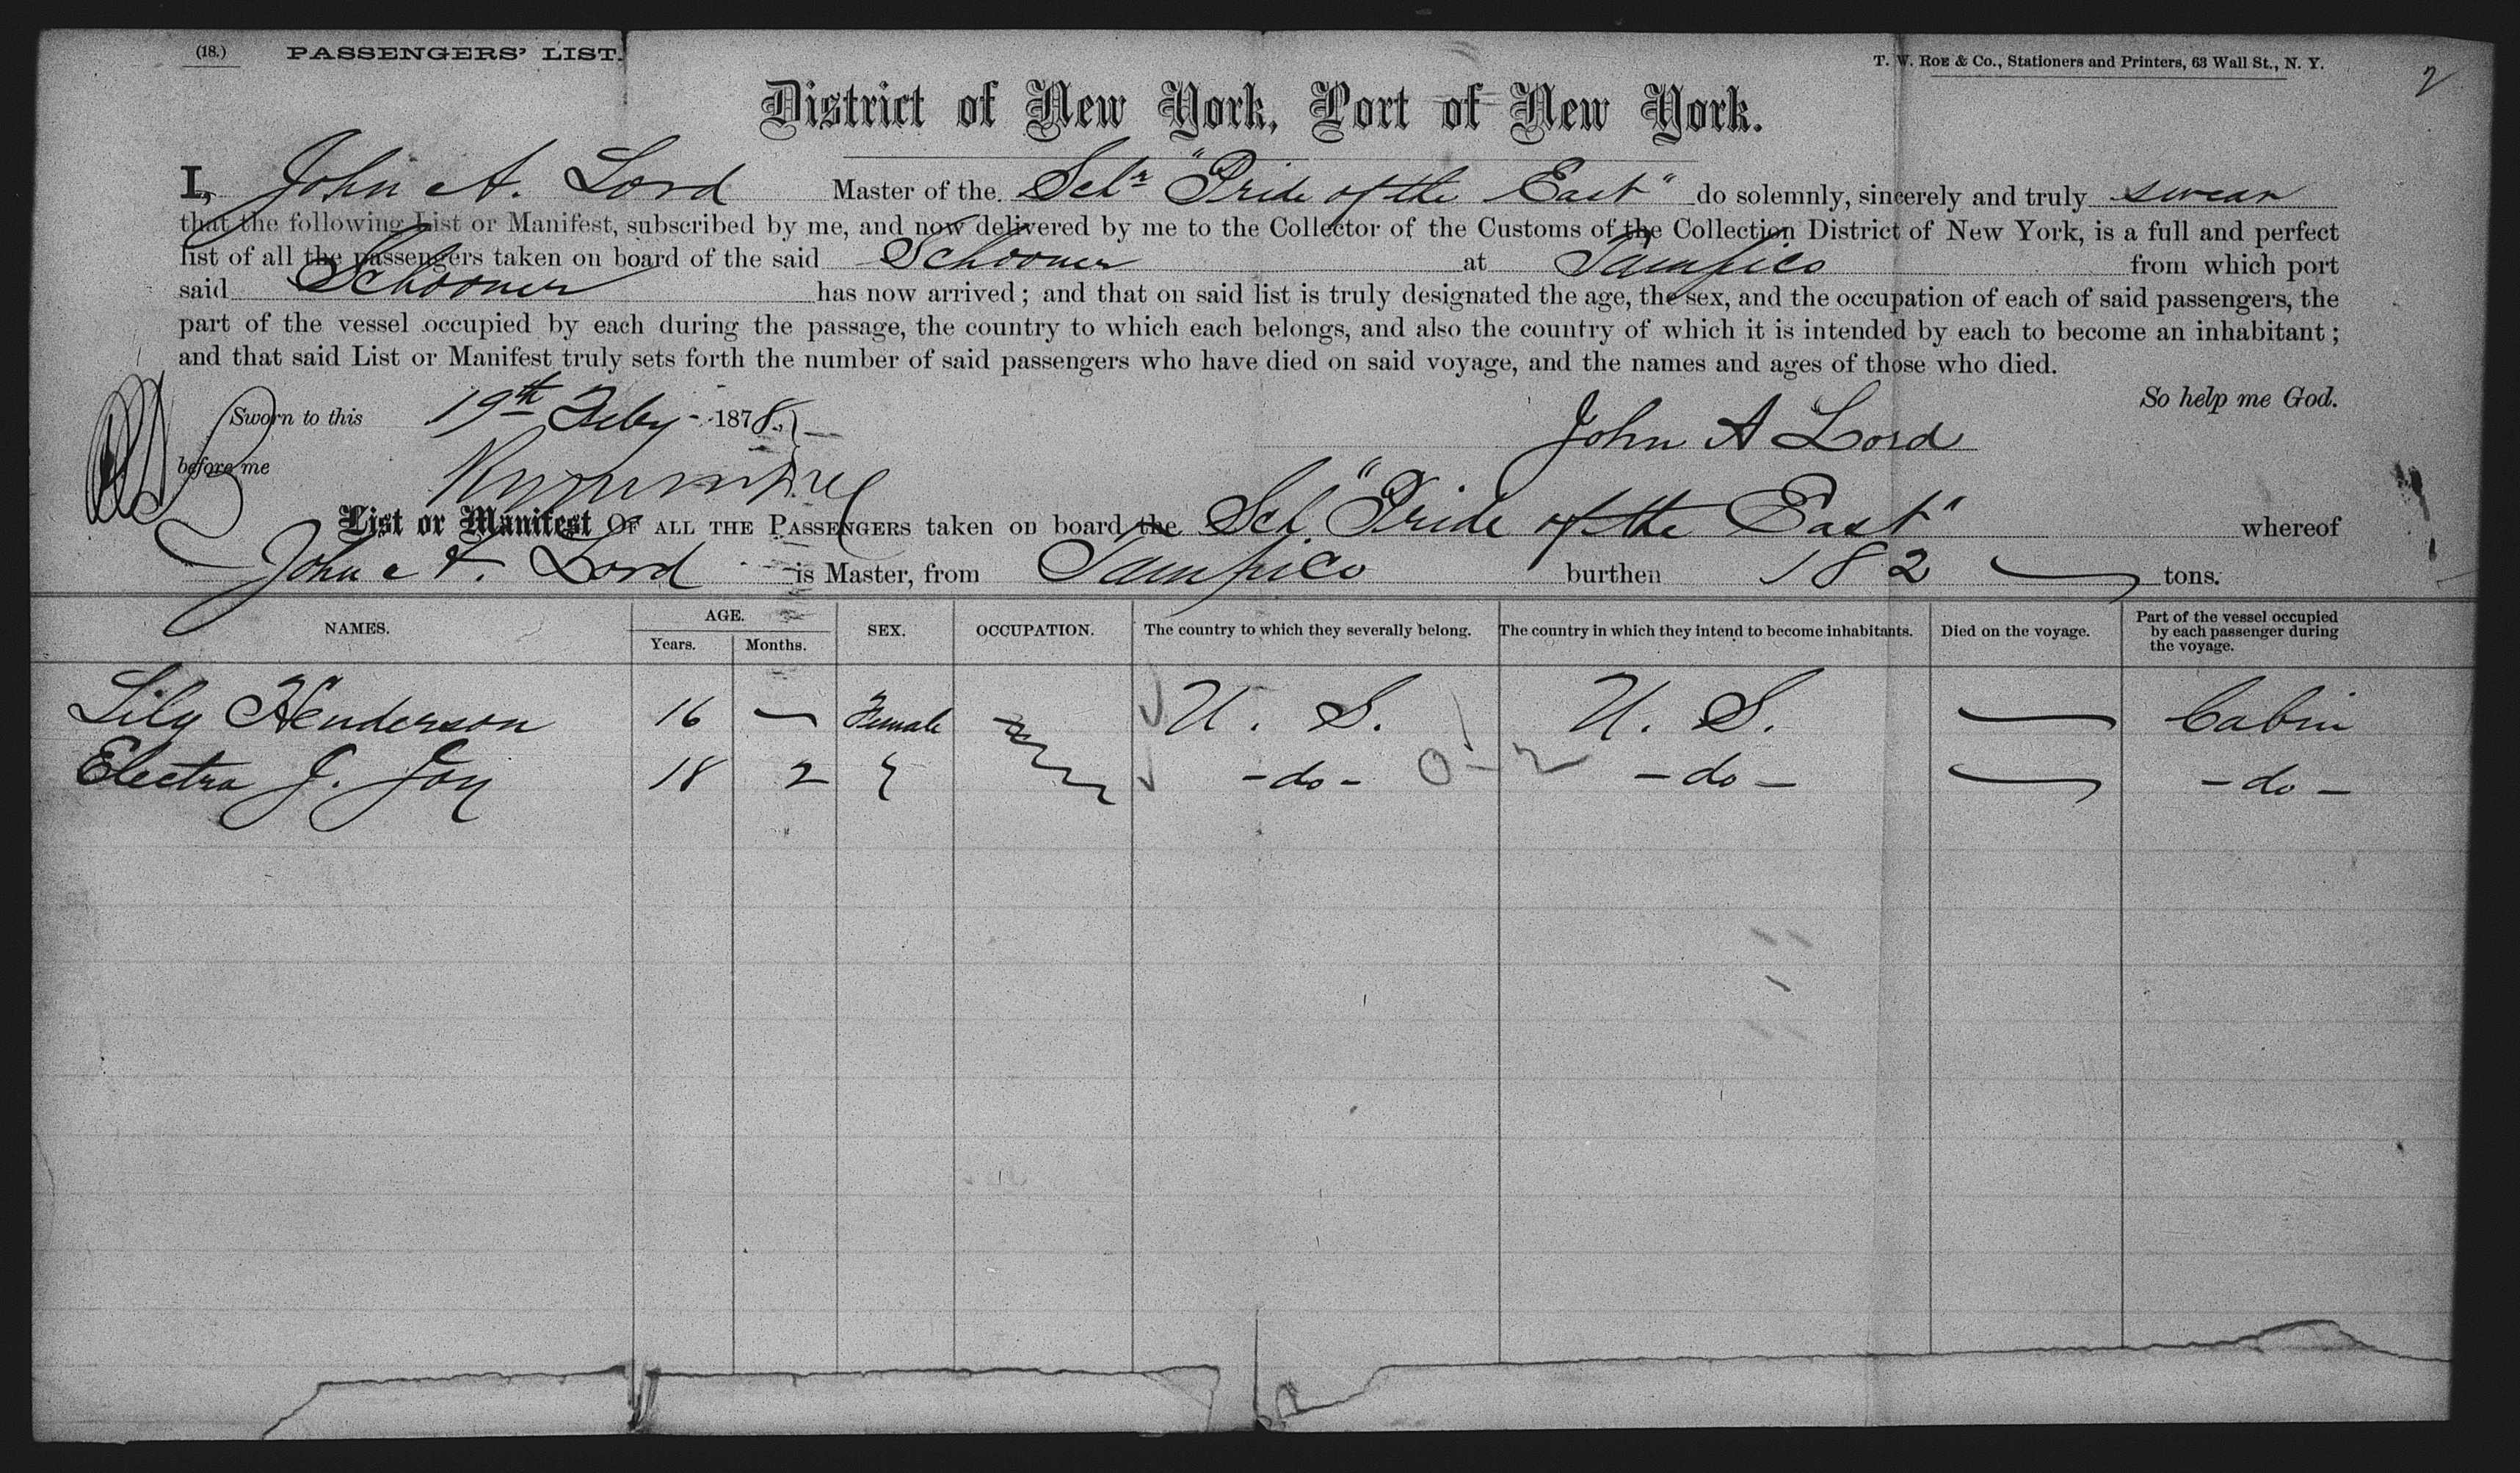 (18.) PASSENGERS' LIST. T. W. ROE & Co., Stationers and Printers, 63 Wall St., N. Y. 2
District of New York, Port of New York.
I, John A. Lord Master of the Schr "Pride of the East" do solemnly, sincerely and truly swear
that the following List or Manifest, subscribed by me, and now delivered by me to the Collector of the Customs of the Collection District of New York, is a full and perfect
list of all the passengers taken on board of the said Schooner at Tampico from which port
said Schooner has now arrived; and that on said list is truly designated the age, the sex, and the occupation of each of said passengers, the
part of the vessel occupied by each during the passage, the country to which each belongs, and also the country of which it is intended by each to become an inhabitant;
and that said List or Manifest truly sets forth the number of said passengers who have died on said voyage, and the names and ages of those who died.
So help me God.
Sworn to this 19th Feby - 1878. John A Lord
before me
List or Manifest OF ALL THE PASSENGERS taken on board the Sch "Pride of the East" whereof
John A. Lord is Master, from Tampico burthen 182 tons.
NAMES. AGE. Years. Months. SEX. OCCUPATION. The country to which they severally belong. The country in which they intend to become inhabitants. Died on the voyage. Part of the vessel occupied by each passenger during the voyage.
Lily Henderson 16 — Female U. S. U. S. — Cabin
Electra J. Joy 18 2 - do - 0 - 2 - do - — - do -